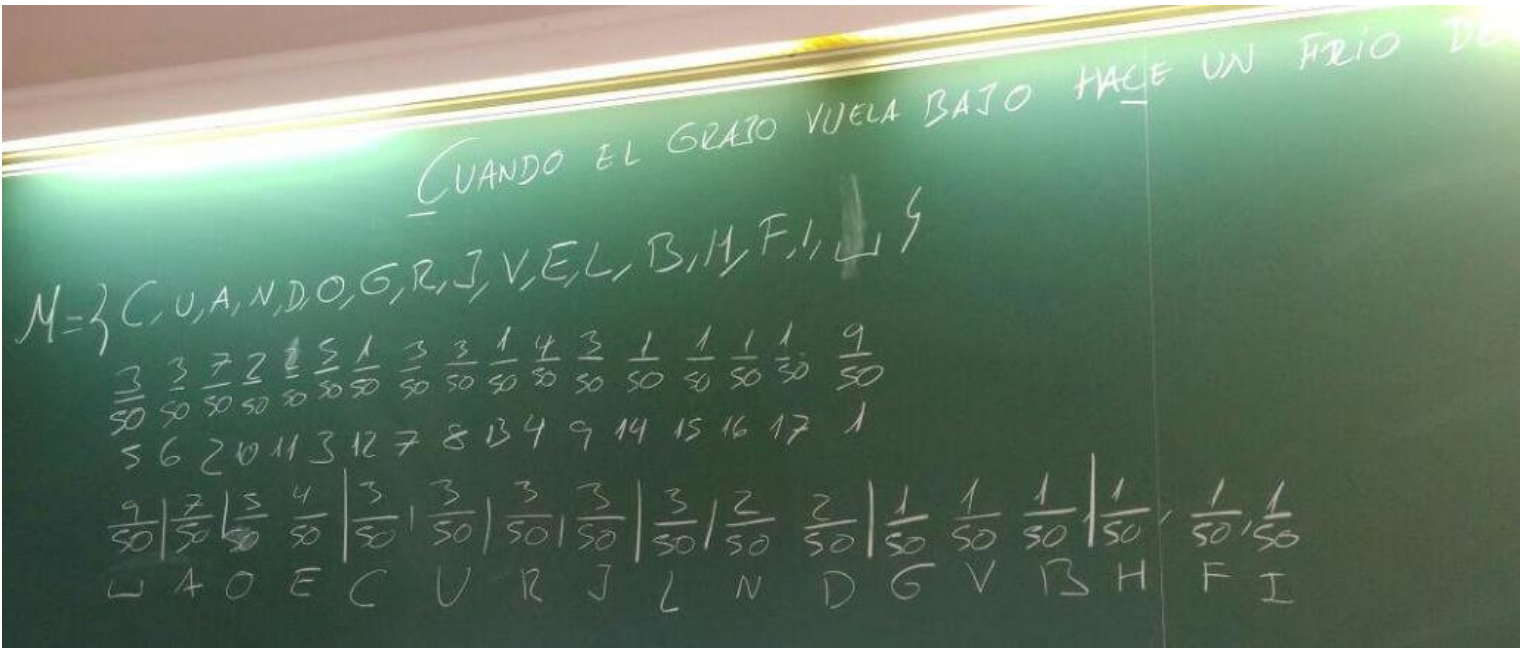 CUANDO EL GRAJO VUELA BAJO HACE UN FRIO DE
M={C,U,A,N,D,O,G,R,J,V,E,L,B,H,F,I,␣}
3/50 3/50 7/50 2/50 2/50 5/50 1/50 3/50 3/50 1/50 4/50 3/50 1/50 1/50 1/50 1/50 9/50
5 6 2 10 11 3 12 7 8 13 4 9 14 15 16 17 1
9/50 | 7/50 | 5/50 4/50 | 3/50, 3/50 | 3/50 | 3/50 | 3/50 | 2/50 2/50 | 1/50 1/50 1/50 | 1/50, 1/50, 1/50
␣ A O E C U R J L N D G V B H F I